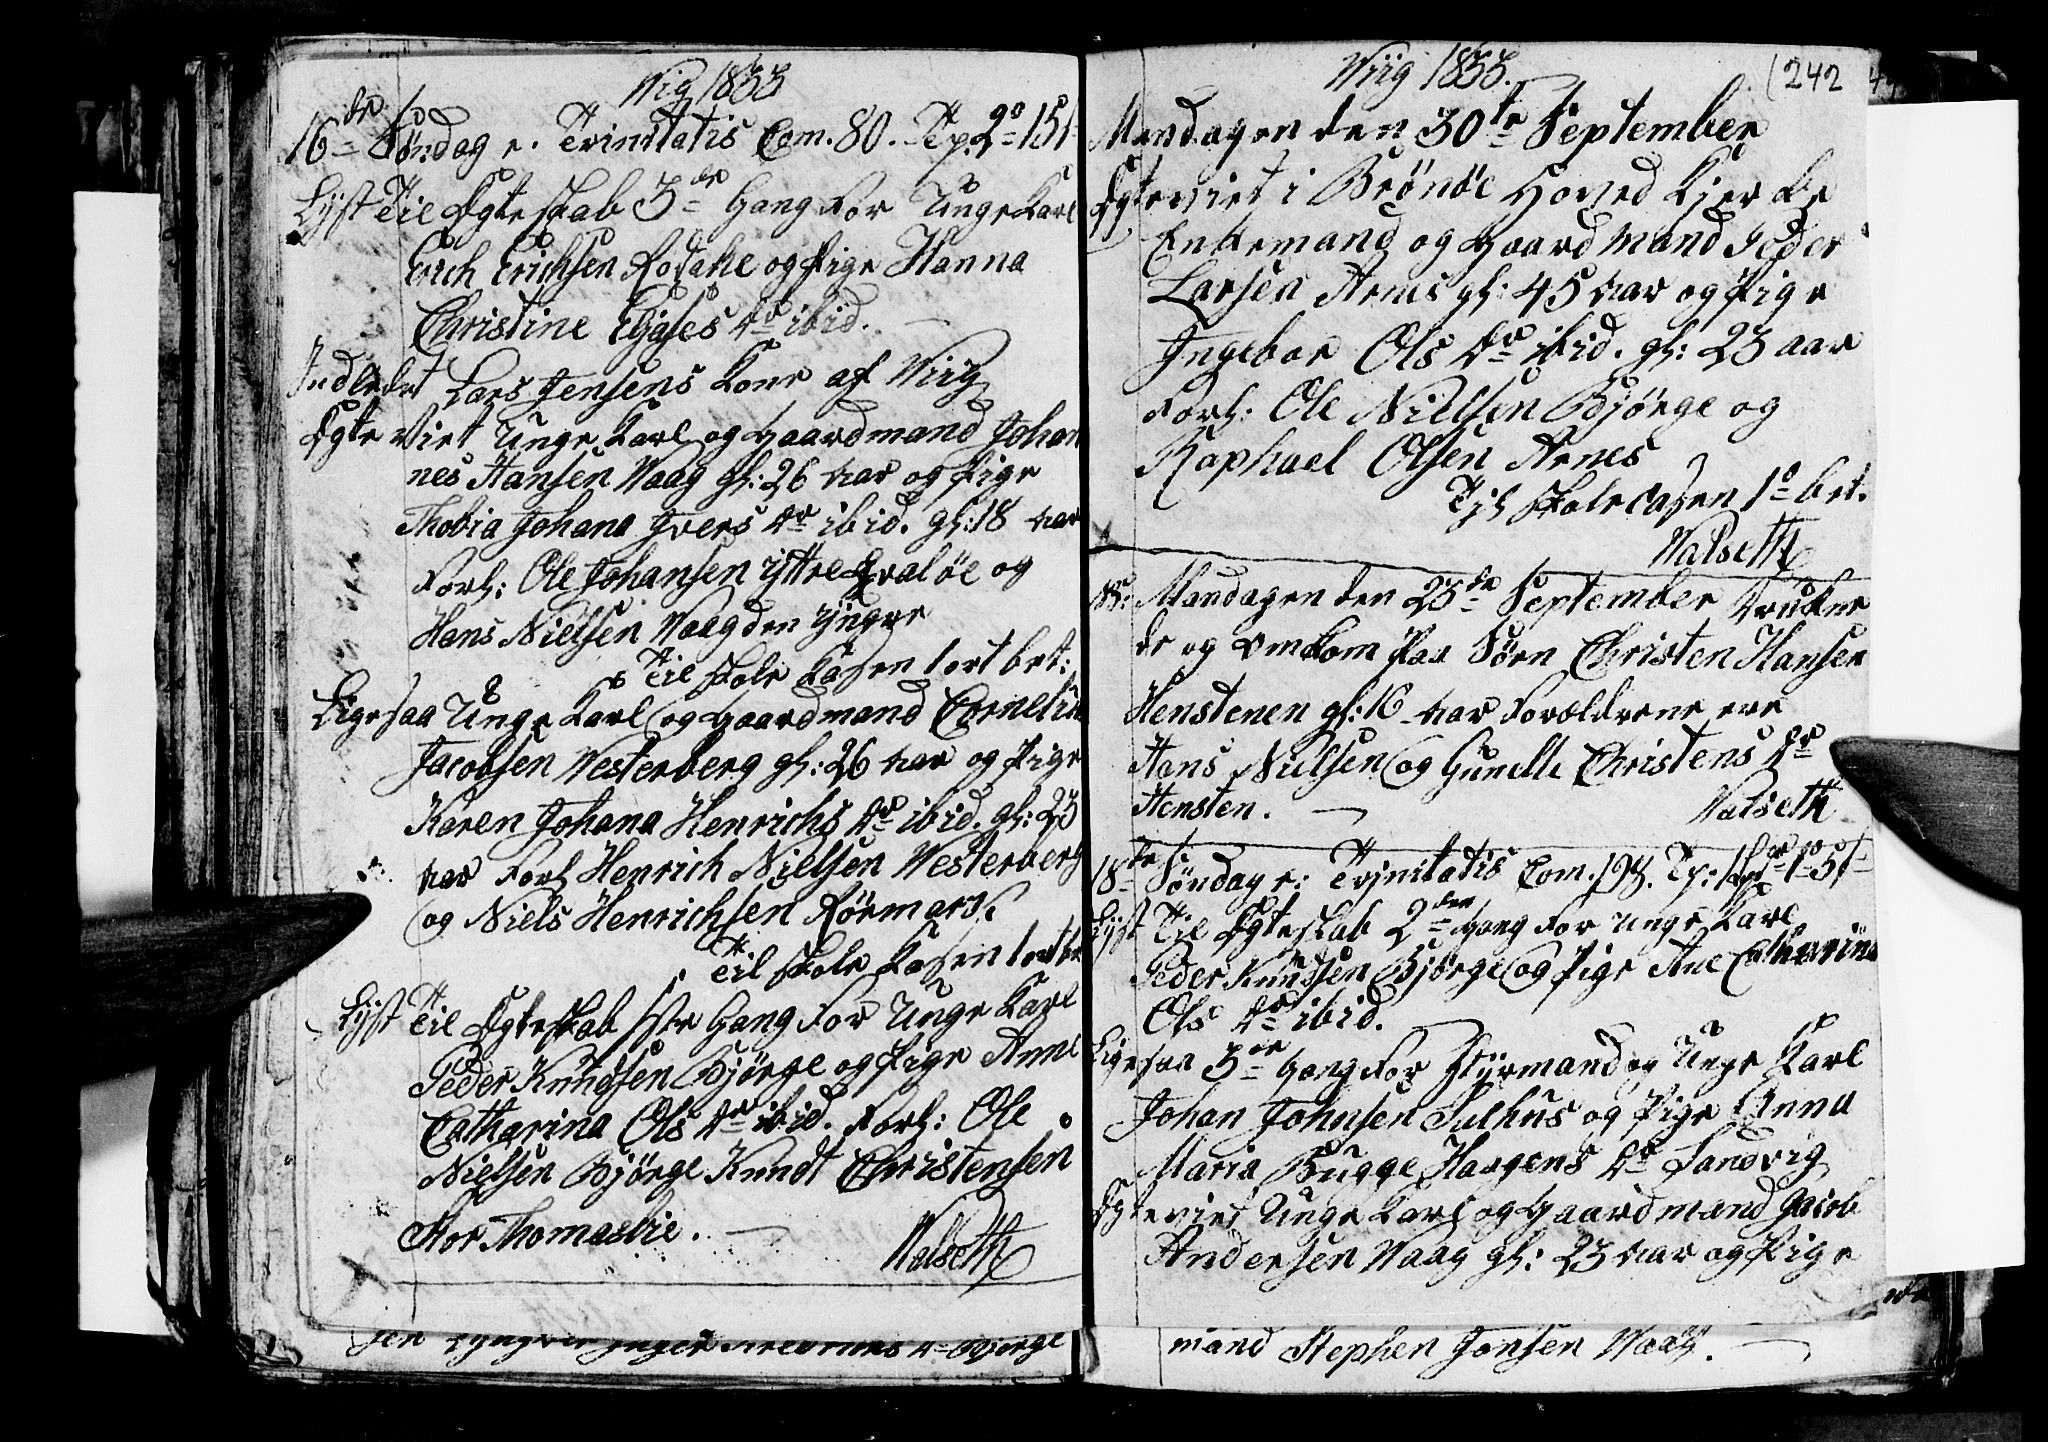 Wiig 1833
16de Søndag e. Trinitatis Com. 80. Tp. 2o 15s
Lyst Til Egteskab 3de Gang For Unge Karl
Erich Erichsen Rodahl og Pige Hanna
Christine Dr ibid.
Indledet Lars Jensens Kone af Wiig
Egte Viet Unge Karl og Gaardmand Johan
nes Hansen Waag gl: 26 Aar og Pige
Thobia Johana Ivers Dr ibid. gl: 18 Aar
Forl: Ole Johansen Yttre Qvaløe og
Hans Nielsen Waag den Yngre
Til Skole Kasen 1 ort bet:
Ligesaa Unge Karl og Gaardmand Cornelius
Jacobsen Westerberg gl: 26 Aar og Pige
Karen Johana Henrichs Dr ibid. gl: 23
Aar Forl Henrich Nielsen Westerberg
og Niels Henrichsen Rørmark
Til Skole Kasen 1 ort bet
Lyst Til Egteskab 1ste Gang For Unge Karl
Peder Knudsen Bjørge og Pige Anne
Catharina Ols Dr ibid. Forl: Ole
Nielsen Bjørge Knudt Christensen
Stor Thomaslie.
Walseth
Bjørge
Wiig 1833.
242
Mandagen den 30te September
Egteviet i Brønøe Hoved Kjerke
Enkemand og Gaardmand Peder
Larsen Arnes gl: 45 Aar og Pige
Ingebor Ols Dr ibid. gl: 23 aar
Forl: Ole Nielsen Bjørge og
Raphael Olsen Arnes
Til Skolecasen 1o bet.
Walseth
NB: Mandagen den 23de September Drukne
de og omkom paa Søen Christen Hansen
Henstenen gl: 16 Aar Forældrene ere
Hans Nielsen og Gunelle Christens Dr
Hensten.
Walseth
18de Søndag e: Trinitatis Com. 194. Tp:
Lyst Til Egteskab 2den Gang For Unge Karl
Peder Knudsen Bjørge og Pige Ane Catharina
Ols Dr ibid.
Ligesaa 3de Gang For Styrmand og Unge Karl
Johan Johnsen Sulhus og Pige Anna
Maria Bugge Haagens Dr Sandvig
Egteviet Unge Karl og Gaardmand Jacob
Andersen Waag gl: 23 Aar og Pige
mand Stephen Jonsen Waag.